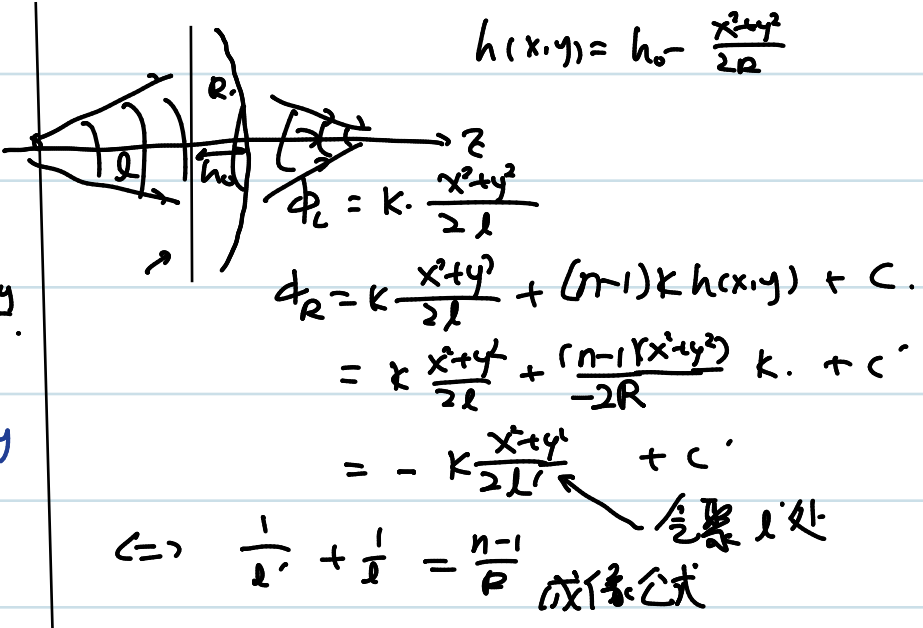 h(x,y) = h₀ - (x²+y²)/(2R)
R.
z
l
h₀
ϕ_L = K· (x²+y²)/(2l)
y.
ϕ_R = K (x²+y²)/(2l) + (n-1) K h(x,y) + C.
= K (x²+y²)/(2l) + (n-1)(x²+y²)/(-2R) K. + C'
y
= - K (x²+y²)/(2l') + C'
会聚 l' 处
<=> 1/l' + 1/l = (n-1)/R
成像公式